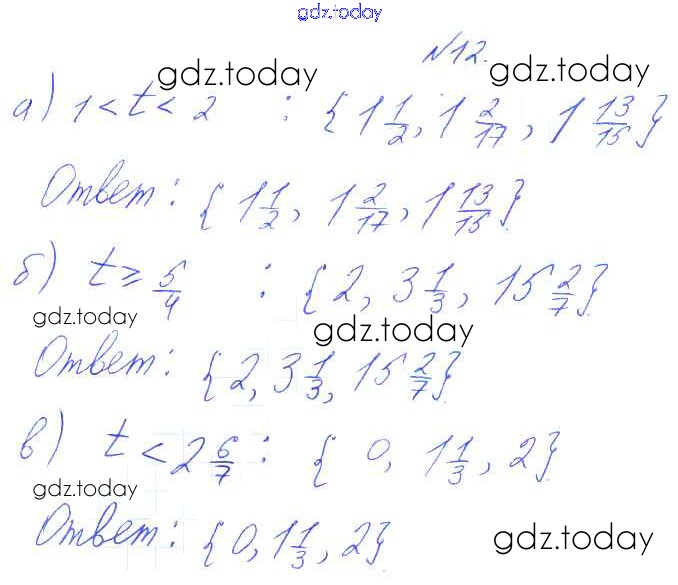 gdz.today
N12.
gdz.today gdz.today
а) 1 < t < 2 : {1 1/2, 1 2/17, 1 13/15}
Ответ: {1 1/2, 1 2/17, 1 13/15}
б) t ≥ 5/4 : {2, 3 1/3, 15 2/7}
gdz.today gdz.today
Ответ: {2, 3 1/3, 15 2/7}
в) t < 2 6/7 : { 0, 1 1/3, 2}
gdz.today
Ответ: {0, 1 1/3, 2}
gdz.today